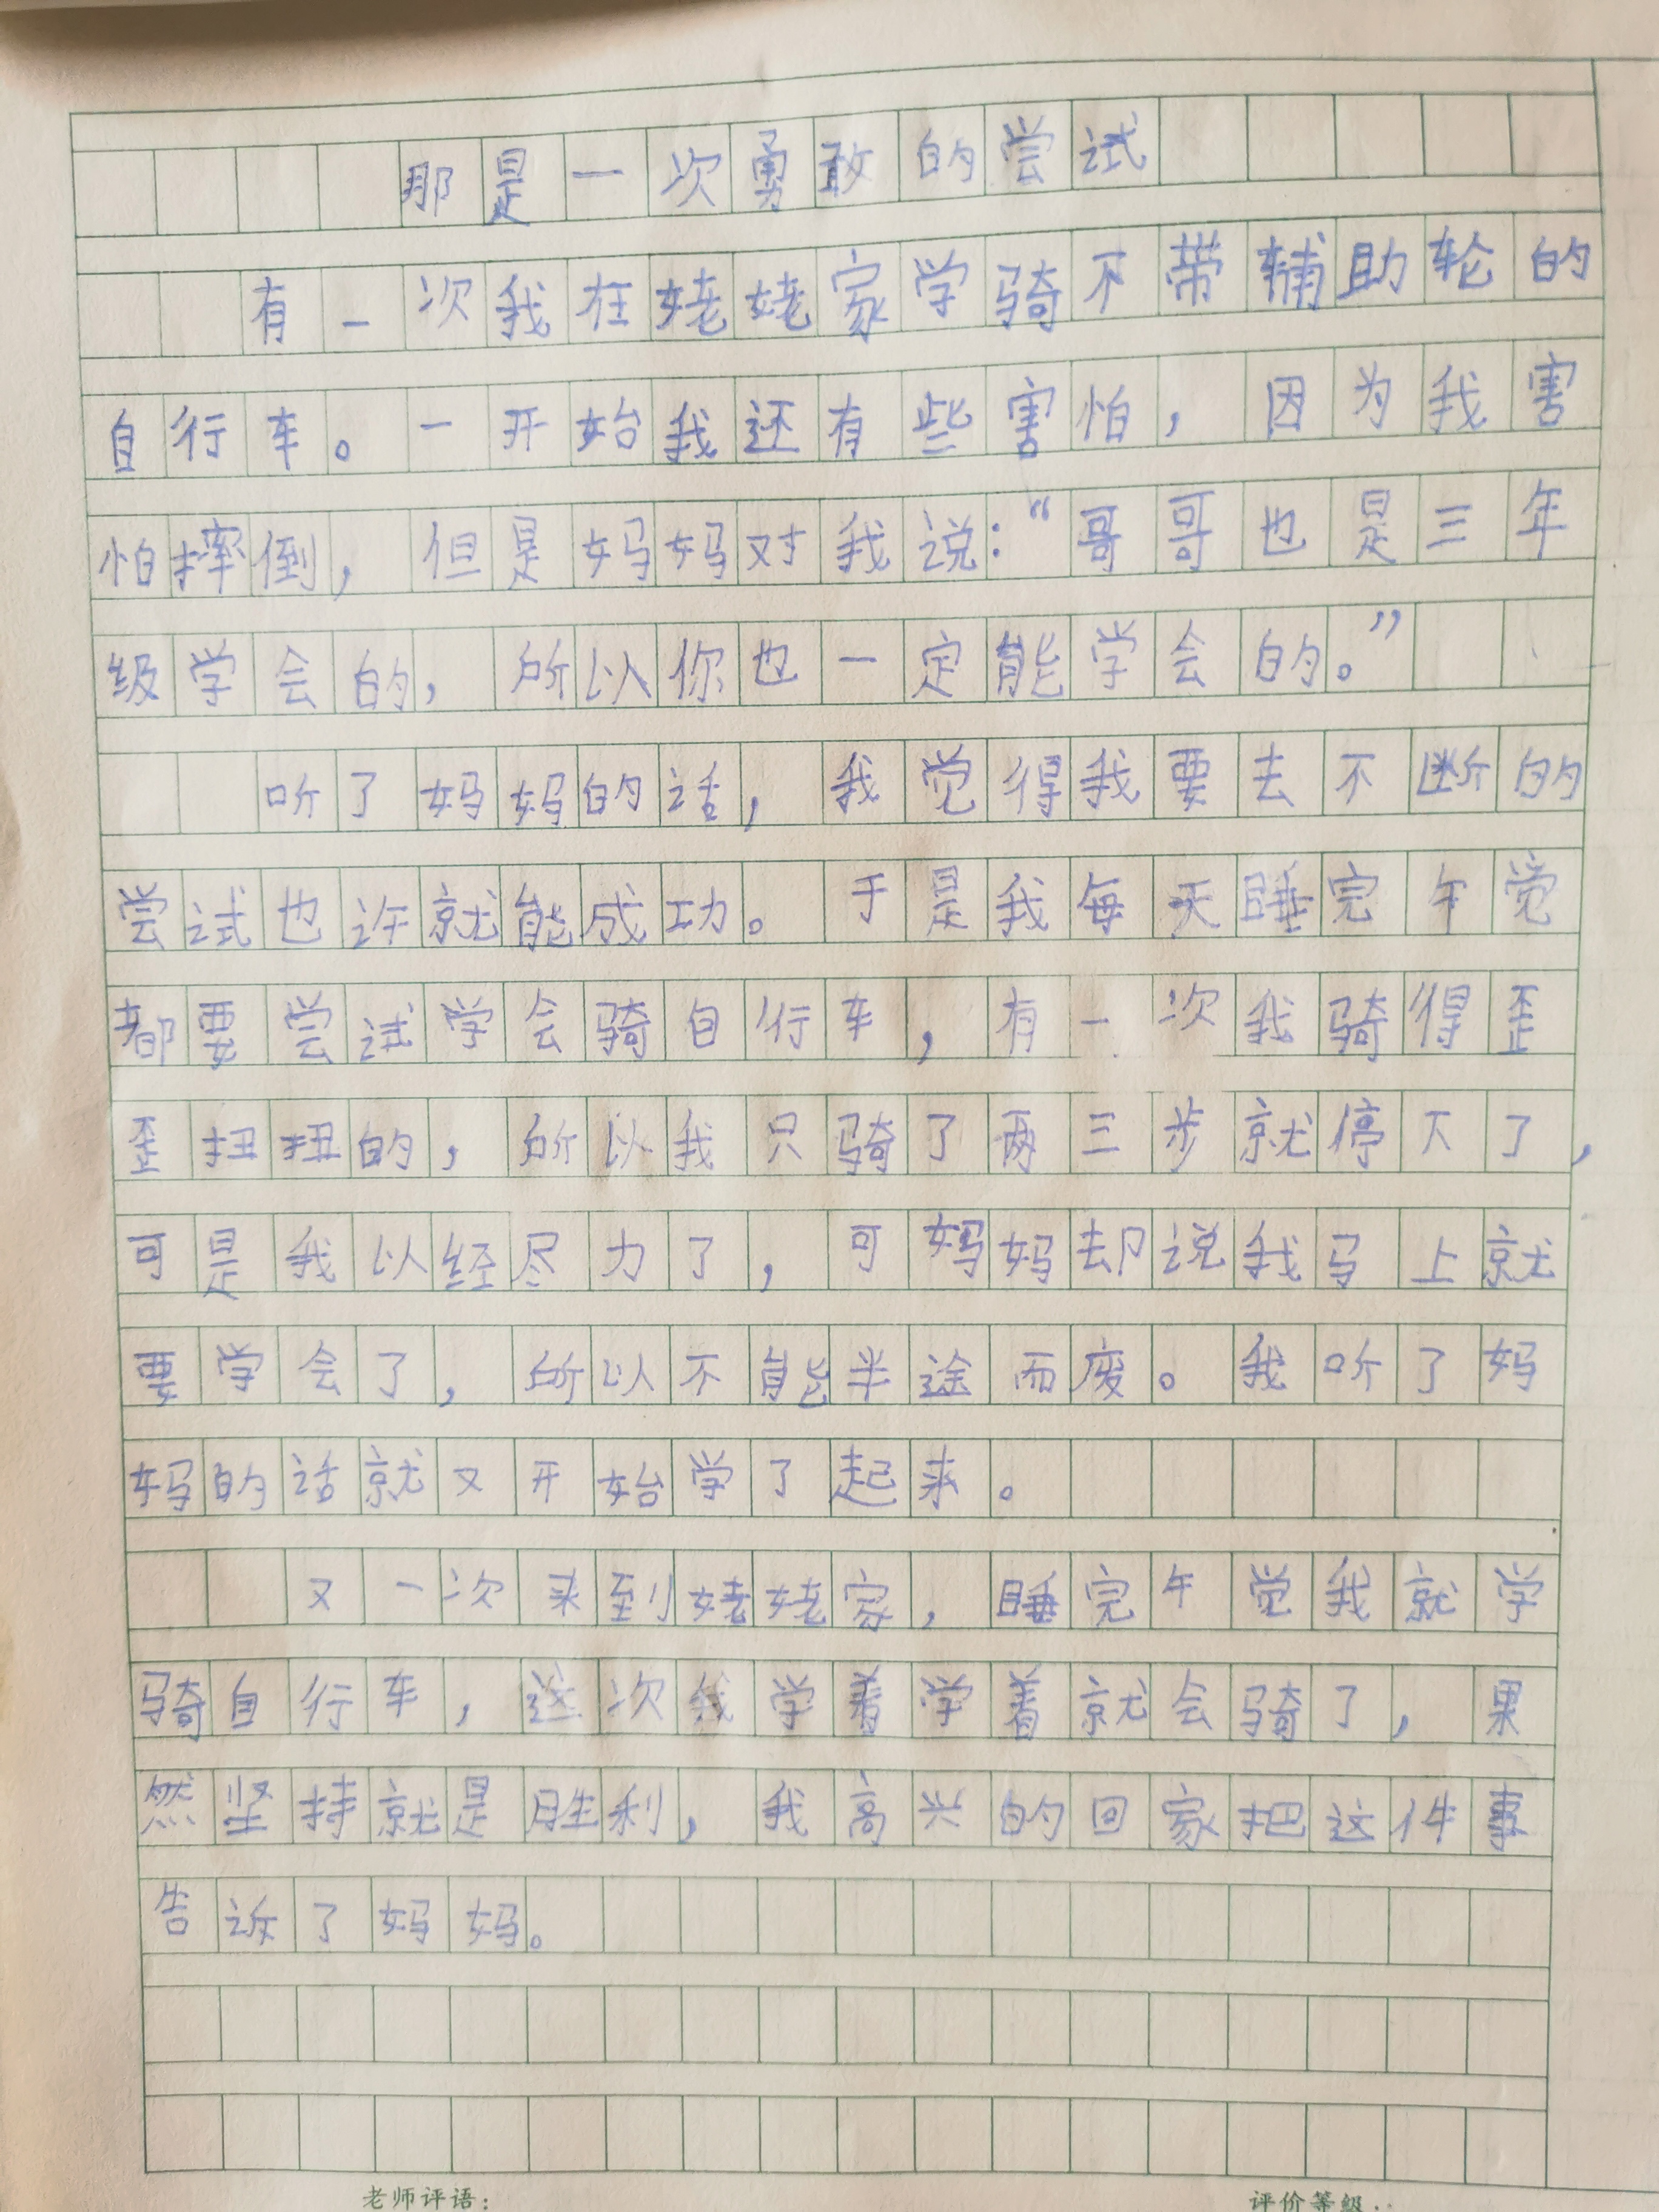 那是一次勇敢的尝试
有一次我在姥姥家学骑不带辅助轮的
自行车。一开始我还有些害怕，因为我害
怕摔倒，但是妈妈对我说：“哥哥也是三年
级学会的，所以你也一定能学会的。”
听了妈妈的话，我觉得我要去不断的
尝试也许就能成功。于是我每天睡完午觉
都要尝试学会骑自行车，有一次我骑得歪
歪扭扭的，所以我只骑了两三步就停下了，
可是我以经尽力了，可妈妈却说我马上就
要学会了，所以不能半途而废。我听了妈
妈的话就又开始学了起来。
又一次来到姥姥家，睡完午觉我就学
骑自行车，这次我学着学着就会骑了，果
然坚持就是胜利，我高兴的回家把这件事
告诉了妈妈。
老师评语：
评价等级：